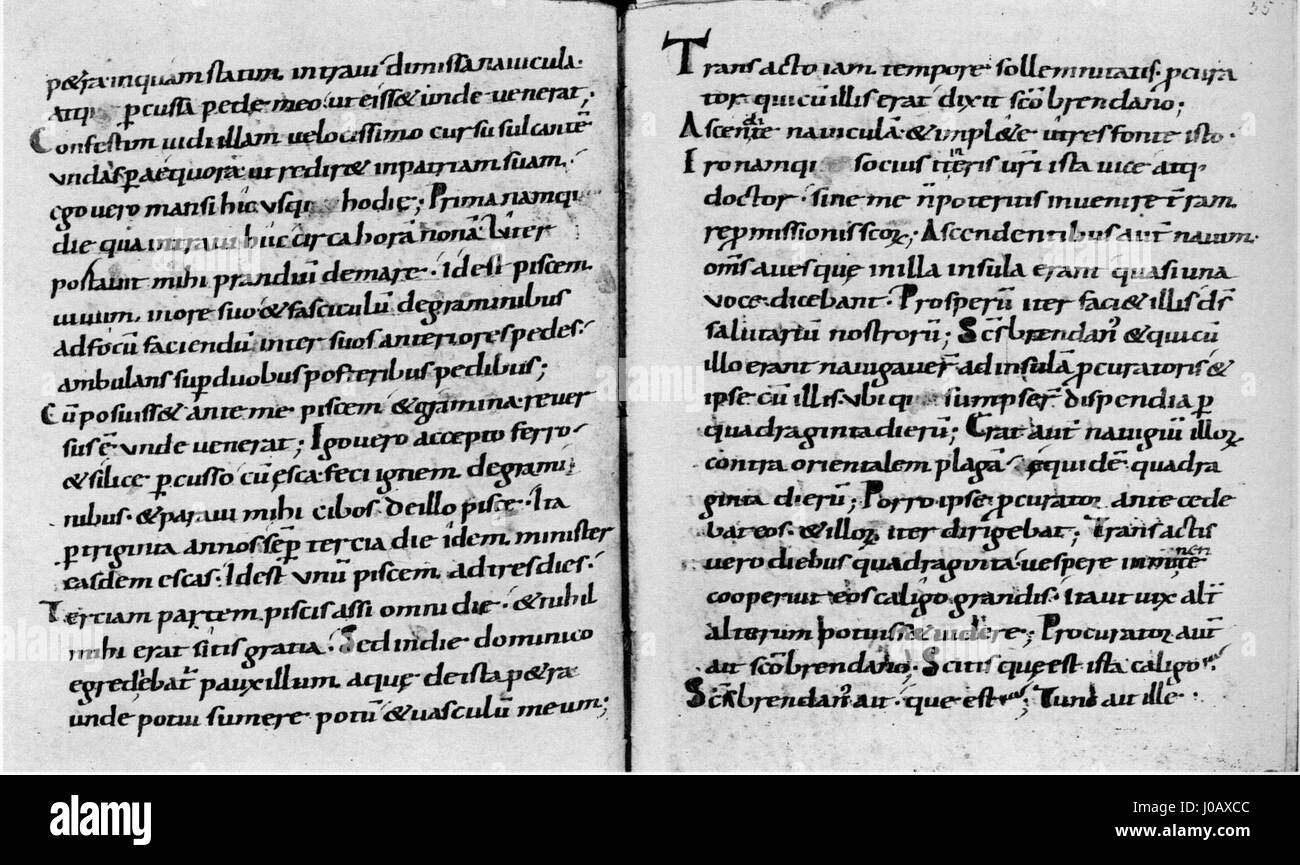 p&ra inquam statim intravi dimissa navicula·
atq; pcussi pede meo ut eiss& unde venerat;
Confestim vidi illam velocissimo cursu sulcantē
undas p aequora ut redir& in patriam suam·
ego vero mansi hic usq; hodię; Prima namq;
die qua intravi huc circa horā nonā luter
postavit mihi prandiū de mare· id est piscem
unum in ore suo & fasciculū de graminibus
ad focū faciendū inter suos anteriores pedes·
ambulans sup duobus posteribus pedibus;
Cū posuiss& ante me piscem & gramina rever
sus ē unde venerat; Igo vero accepto ferro
& silice pcusso cū esca feci ignem de grami
nibus· & paravi mihi cibos de illo pisce· Ita
p triginta annos sēp tercia die idem minister
easdem escas· id est unū piscem ad tres dies·
Terciam partem piscis assi omni die· & nihil
mihi erat sitis gratia· Sed in die dominico
egrediebat pauxillum aquę de ista p&ra
unde potui sumere potū & vasculū meum;
35
Transacto iam tempore sollemnitatis· pcura
tor qui cū illis erat dixit scō brendano;
Ascendite naviculā & impl&e utres fonte isto·
Iro namq; socius itineris uri ista vice atq;
doctor· sine me n poteritis invenire tram
repmissionis scor; Ascendentibus aut navim·
oms aves que in illa insula erant quasi una
voce dicebant· Prosperū iter faci& illis ds
salutariū nostrorū; Scs brendan' & qui cū
illo erant navigaver ad insulā pcuratoris &
ipse cū illis· ubi sumpser dispendia p
quadraginta dierū; Erat aut navigiū illor
contra orientalem plagā equidē quadra
ginta dierū; Porro ipse pcurator ante cede
bat eos· & illor iter dirigebat; Transactis
vero diebus quadraginta· vespere inminente
cooperuit eos caligo grandis· Ita ut vix alt
alterum potuiss& videre; Procurator aut
ait scō brendano· Scitis que est ista caligo
Scs brendan' ait· que est; Tunc aut ille·
alamy
alamy
alamy
alamy
Image ID: J0AXCC
www.alamy.com